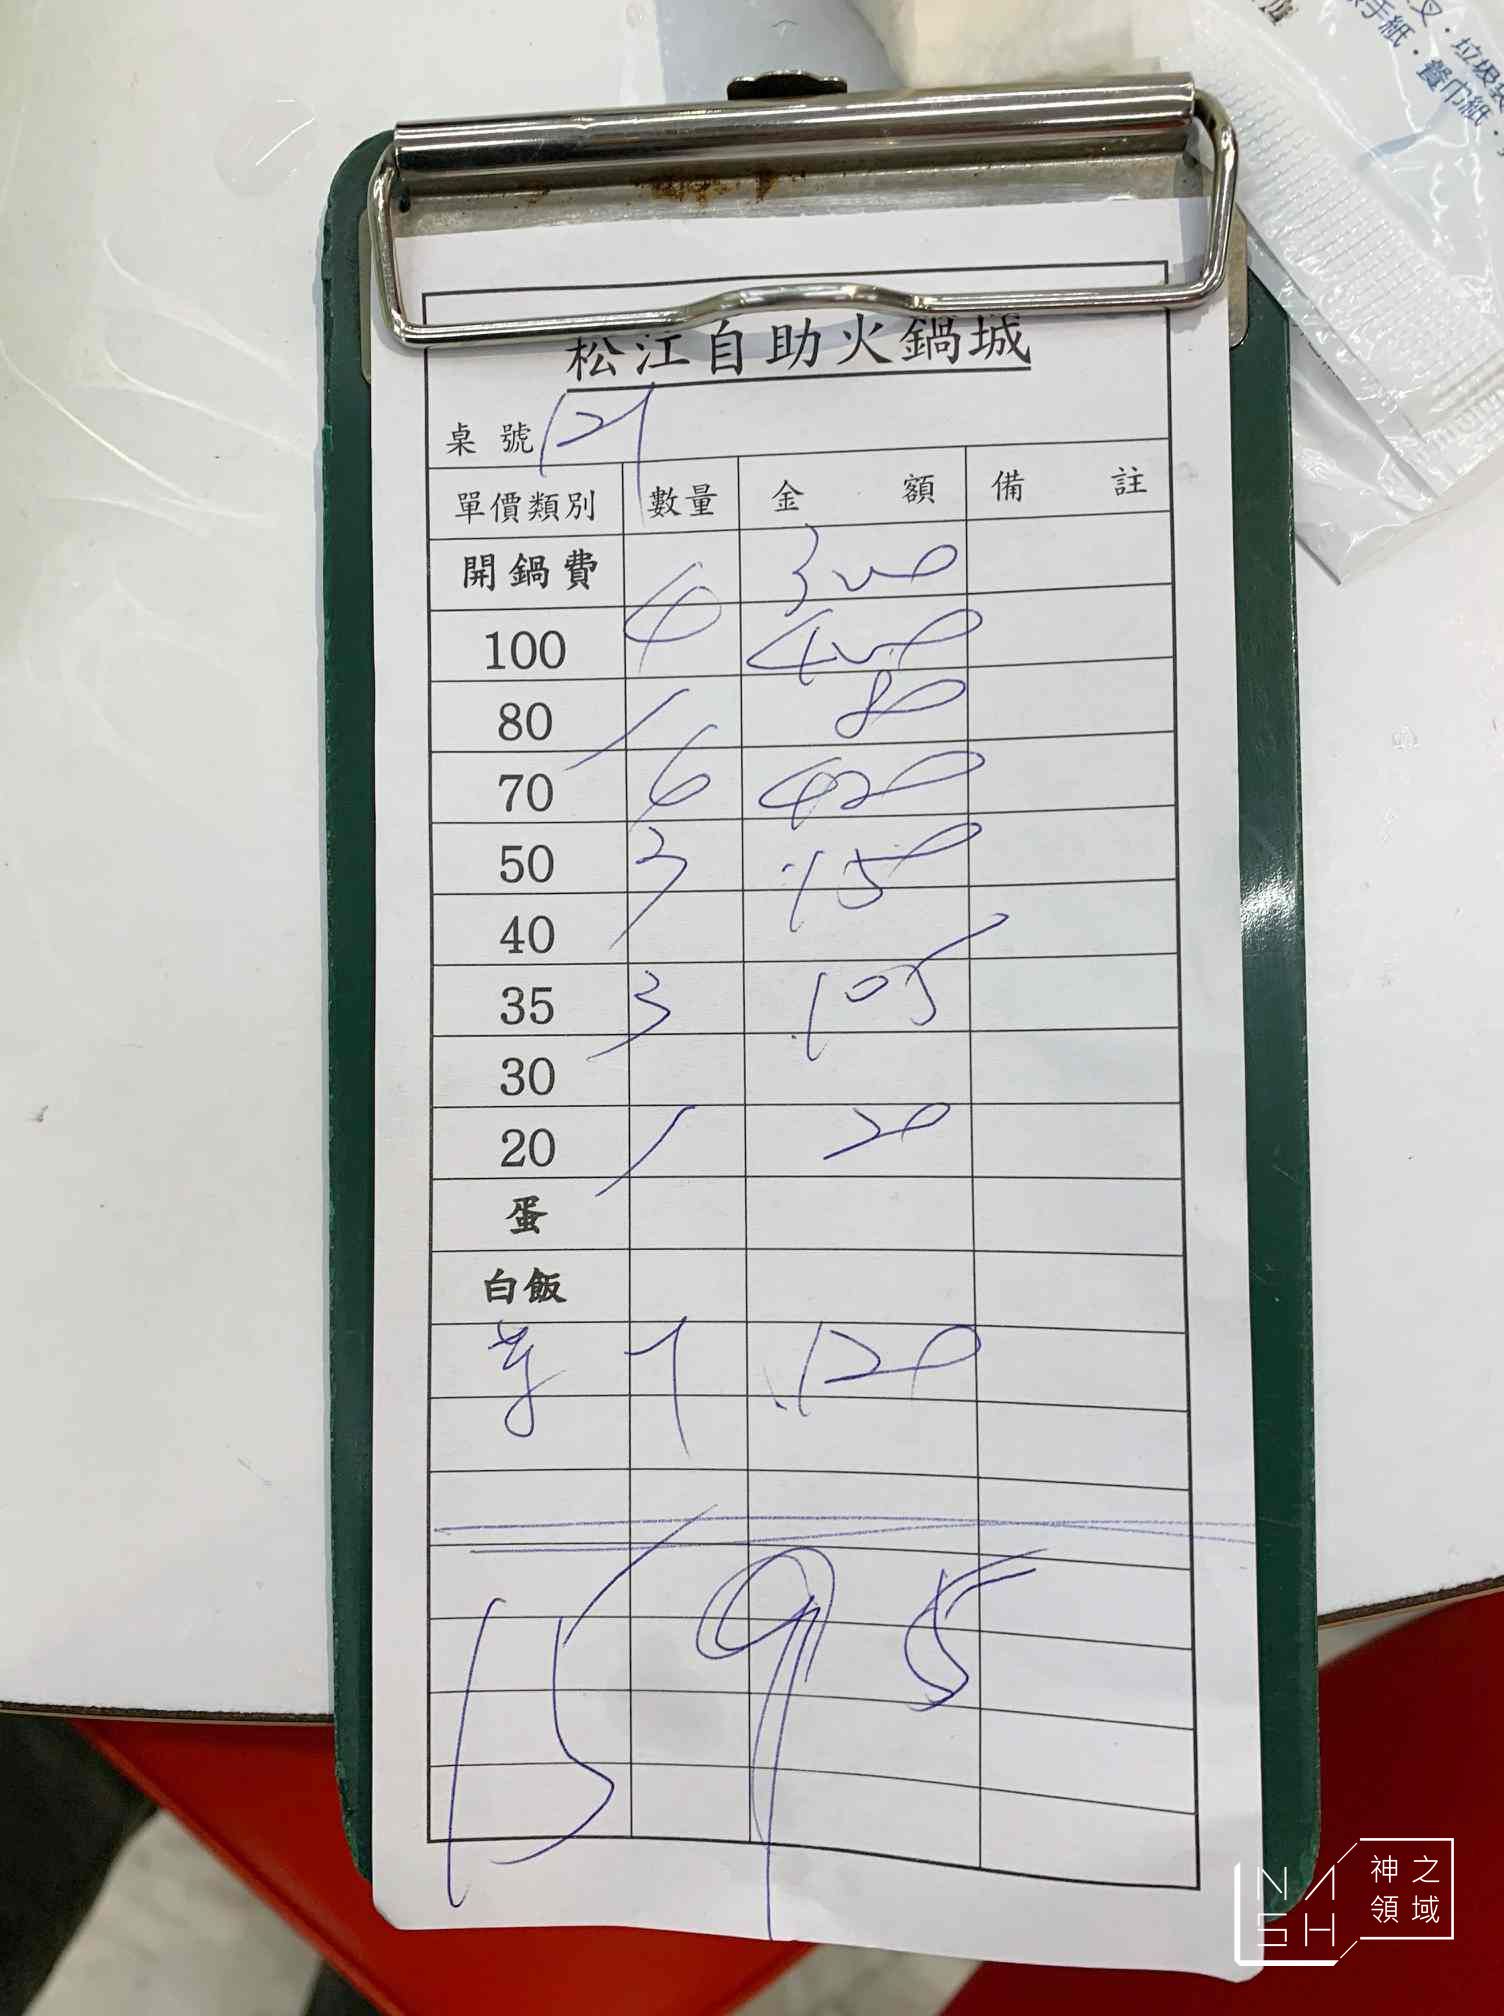 叉·垃圾袋
手紙·餐巾紙·
松江自助火鍋城
桌號 121
單價類別 數量 金額 備註
開鍋費 300
100 4 400
80 1 80
70 6 420
50 3 150
40
35 3 105
30
20 1 20
蛋
白飯
1 120
1595
NASH 神之領域